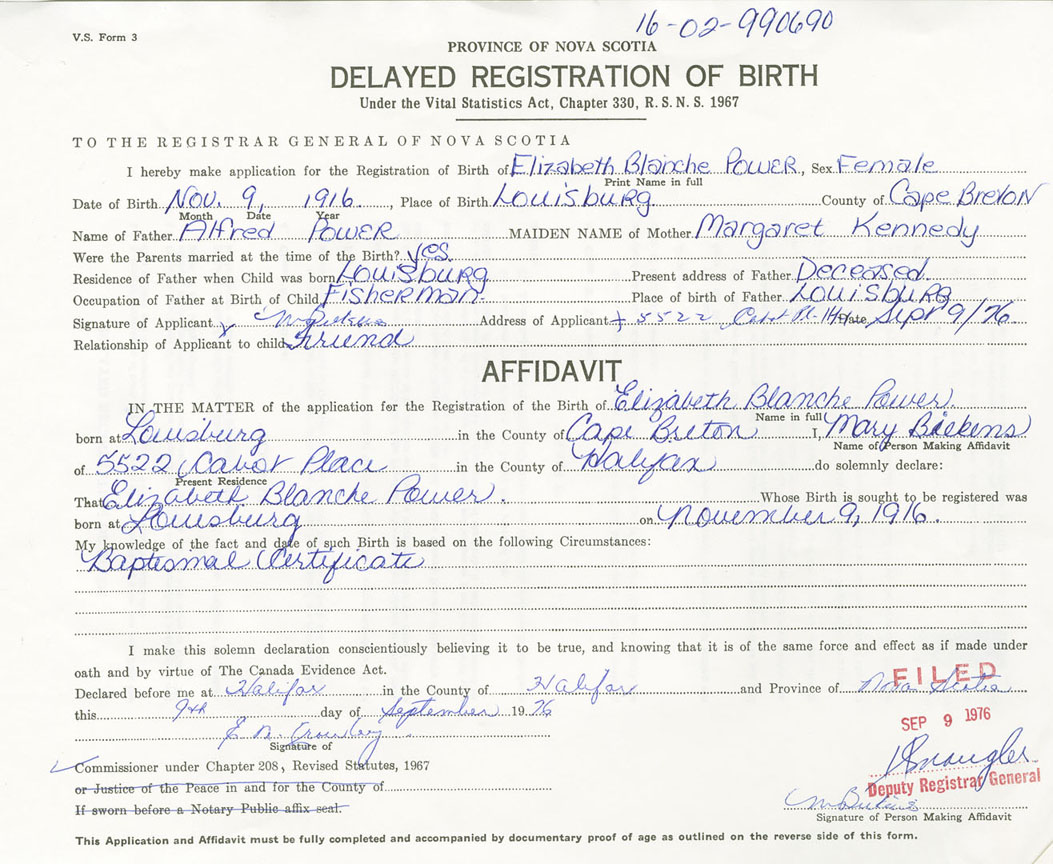 16-02-990690
V.S. Form 3
PROVINCE OF NOVA SCOTIA
DELAYED REGISTRATION OF BIRTH
Under the Vital Statistics Act, Chapter 330, R.S.N.S. 1967
TO THE REGISTRAR GENERAL OF NOVA SCOTIA
I hereby make application for the Registration of Birth of Elizabeth Blanche POWER, Sex Female
Print Name in full
Date of Birth Nov. 9, 1916, Place of Birth Louisburg County of Cape Breton
Month Date Year
Name of Father Alfred POWER MAIDEN NAME of Mother Margaret Kennedy
Were the Parents married at the time of the Birth? yes
Residence of Father when Child was born Louisburg Present address of Father Deceased
Occupation of Father at Birth of Child Fisherman Place of birth of Father Louisburg
Signature of Applicant Address of Applicant 5522 Cabot Pl. Date Sept 9/76
Relationship of Applicant to child Friend
AFFIDAVIT
IN THE MATTER of the application for the Registration of the Birth of Elizabeth Blanche Power
Name in full
born at Louisburg in the County of Cape Breton I, Mary
Name of Person Making Affidavit
of 5522 Cabot Place in the County of Halifax do solemnly declare:
Present Residence
That Elizabeth Blanche Power. Whose Birth is sought to be registered was
born at Louisburg on November 9, 1916.
My knowledge of the fact and date of such Birth is based on the following Circumstances:
Baptismal Certificate
I make this solemn declaration conscientiously believing it to be true, and knowing that it is of the same force and effect as if made under
oath and by virtue of The Canada Evidence Act.
FILED
Declared before me at Halifax in the County of Halifax and Province of Nova Scotia
this 9th day of September 1976
SEP 9 1976
Signature of
Commissioner under Chapter 208, Revised Statutes, 1967
or Justice of the Peace in and for the County of
Deputy Registrar General
If sworn before a Notary Public affix seal.
Signature of Person Making Affidavit
This Application and Affidavit must be fully completed and accompanied by documentary proof of age as outlined on the reverse side of this form.